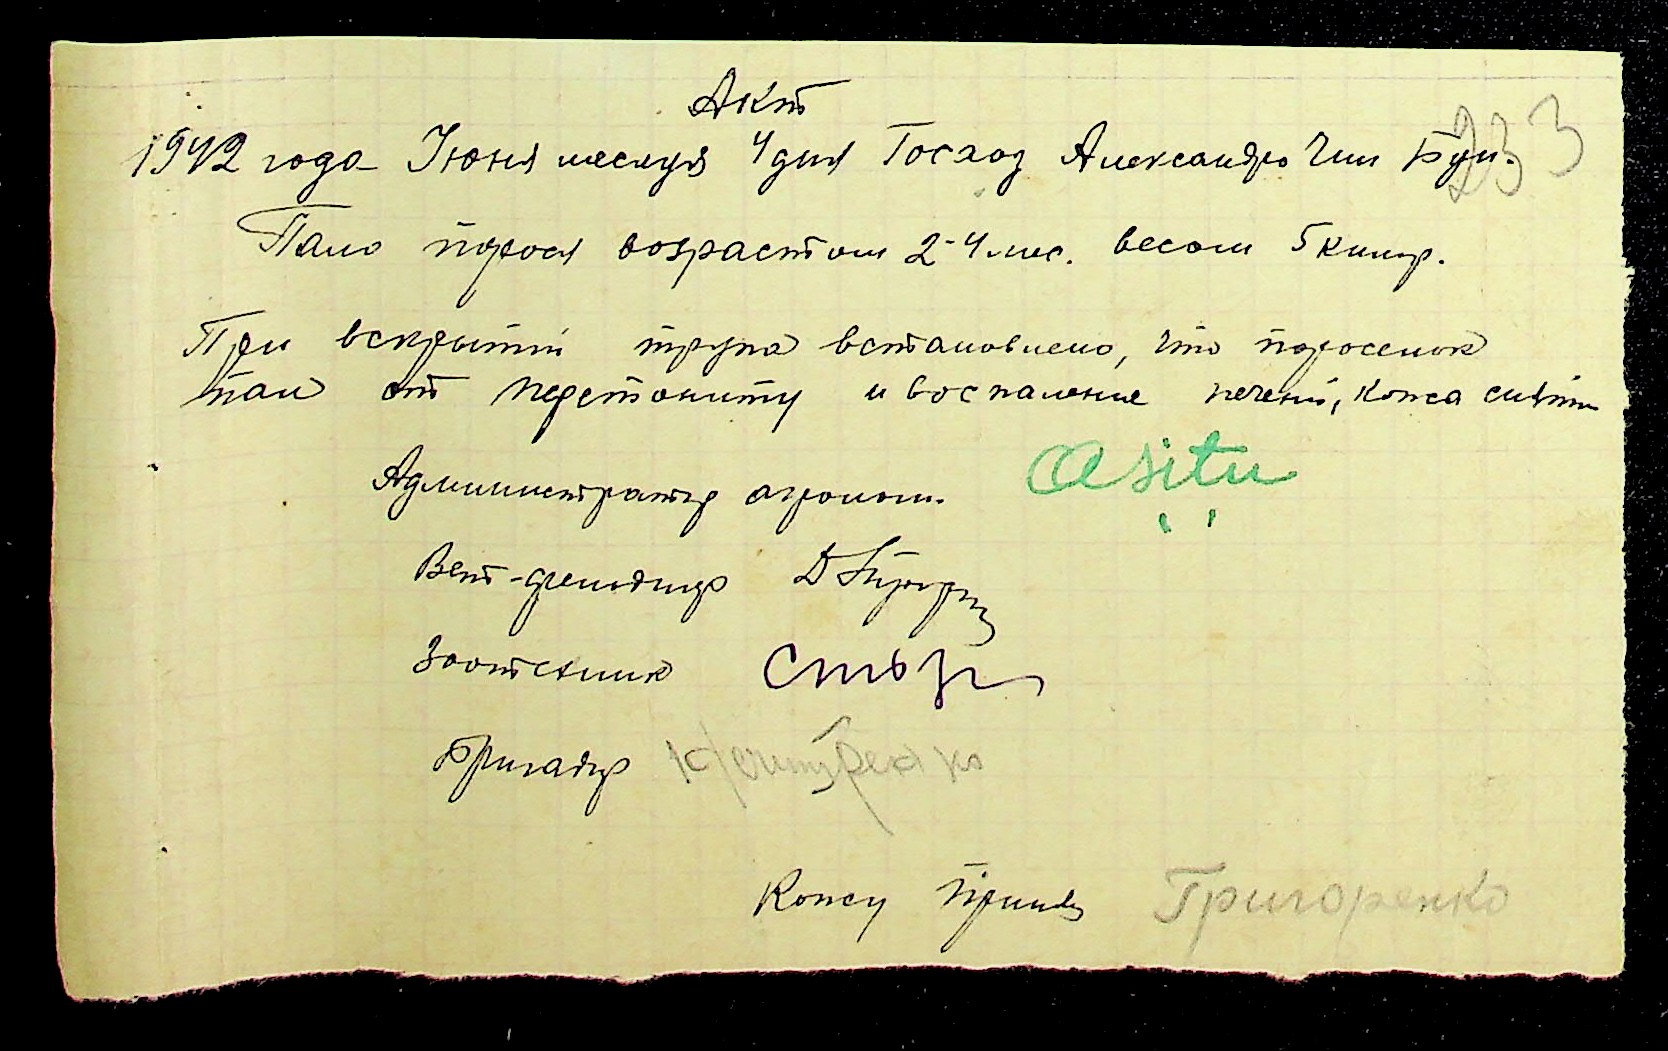 Акт
1942 года Июня месяца 4 дня Госхоз Александро
233
Пало порося возрастом 2-4 мес. весом 5 килгр.
При вскрытии трупа встановлено, что поросенок
пал от перетониту и воспаление печени, кожа снята
Администратор агроном.
Вет-фельдшер
Зоотехник
Бригадир
Кожу принял Григоренко